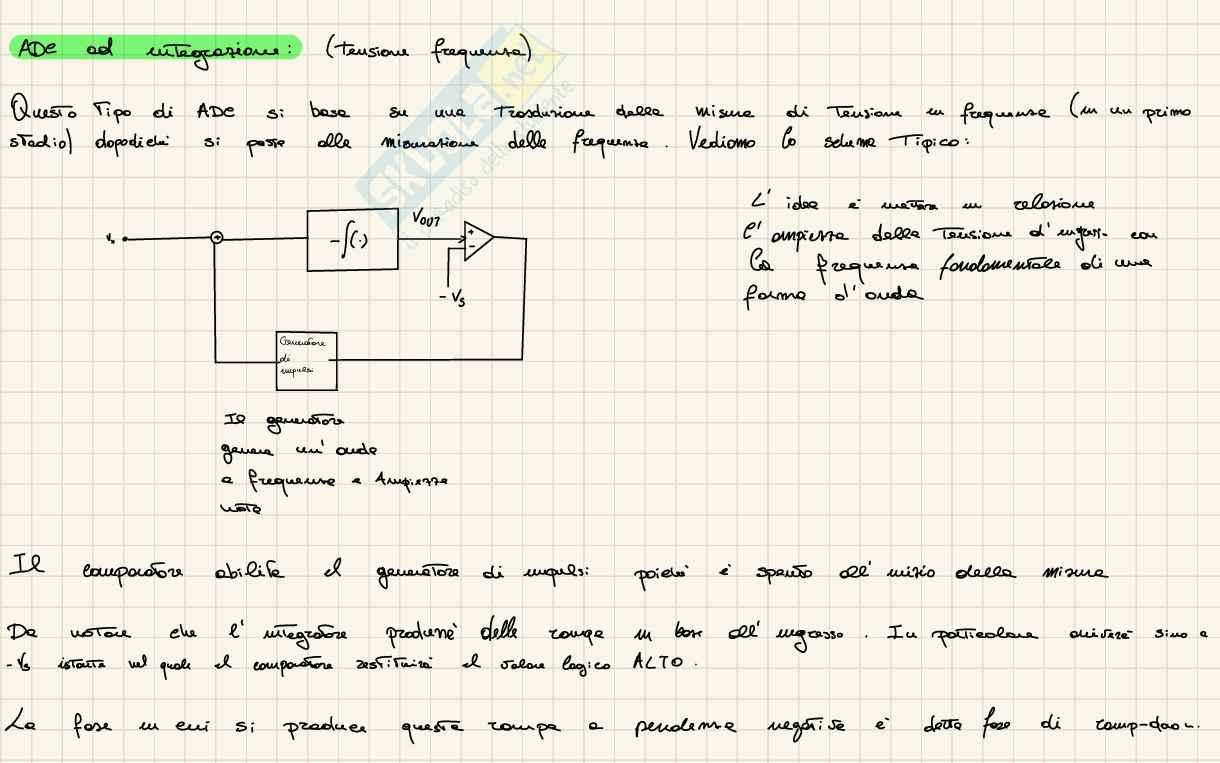 ADC ad integrazione: (tensione frequenza)
Questo Tipo di ADC si basa su una Trasduzione dalla misura di Tensione in frequenza (in un primo
stadio) dopodiché si passa alla misurazione della frequenza. Vediamo lo schema Tipico:
SKUOLA.net
L'idea è mettere in relazione
l'ampiezza della Tensione d'ingress. con
la frequenza fondamentale di una
forma d'onda
Vx
+
-∫(·)
VOUT
+
-
- Vs
Generatore
di
impulsi
Il generatore
genera un'onda
a frequenza e Ampiezza
nota
Il comparatore abilita il generatore di impulsi poiché è spento all'inizio della misura
Da notare che l'integratore produrrà delle rampe in base all'ingresso. In particolare arriverà sino a
-Vs istante nel quale il comparatore restituirà il valore logico ALTO.
La fase in cui si produce questa rampa a pendenza negativa è detta fase di ramp-down.